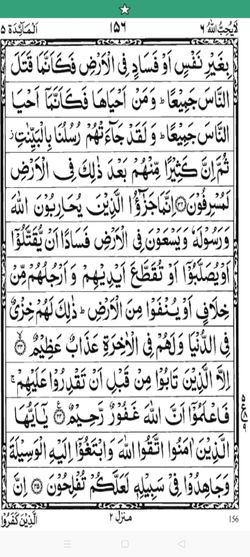 لَا يُحِبُّ اللّٰهُ ٦ ١٥٦ اَلْمَآئِدَة ٥
بِغَيْرِ نَفْسٍ اَوْ فَسَادٍ فِى الْاَرْضِ فَكَاَنَّمَا قَتَلَ
النَّاسَ جَمِيْعًاؕ وَ مَنْ اَحْيَاهَا فَكَاَنَّمَاۤ اَحْيَا
النَّاسَ جَمِيْعًاؕ وَ لَقَدْ جَآءَتْهُمْ رُسُلُنَا بِالْبَيِّنٰتِؗ
ثُمَّ اِنَّ كَثِيْرًا مِّنْهُمْ بَعْدَ ذٰلِكَ فِى الْاَرْضِ
لَمُسْرِفُوْنَ ﴿٣٢﴾ اِنَّمَا جَزٰٓؤُا الَّذِيْنَ يُحَارِبُوْنَ اللّٰهَ
وَرَسُوْلَهٗ وَ يَسْعَوْنَ فِى الْاَرْضِ فَسَادًا اَنْ يُّقَتَّلُوْۤا
اَوْ يُصَلَّبُوْۤا اَوْ تُقَطَّعَ اَيْدِيْهِمْ وَ اَرْجُلُهُمْ مِّنْ
خِلَافٍ اَوْ يُنْفَوْا مِنَ الْاَرْضِؕ ذٰلِكَ لَهُمْ خِزْىٌ
فِى الدُّنْيَا وَلَهُمْ فِى الْاٰخِرَةِ عَذَابٌ عَظِيْمٌ ﴿٣٣﴾
اِلَّا الَّذِيْنَ تَابُوْا مِنْ قَبْلِ اَنْ تَقْدِرُوْا عَلَيْهِمْۚ
فَاعْلَمُوْۤا اَنَّ اللّٰهَ غَفُوْرٌ رَّحِيْمٌ ﴿٣٤﴾ يٰۤاَيُّهَا
الَّذِيْنَ اٰمَنُوا اتَّقُوا اللّٰهَ وَ ابْتَغُوْۤا اِلَيْهِ الْوَسِيْلَةَ
وَجَاهِدُوْا فِىْ سَبِيْلِهٖ لَعَلَّكُمْ تُفْلِحُوْنَ ﴿٣٥﴾ اِنَّ
الَّذِيْنَ كَفَرُوْا منزل ٢ 156